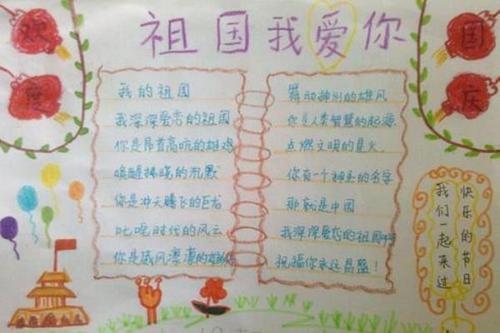 欢度
祖国我爱你
国庆
我的祖国
我深深爱恋的祖国
你是昂首高吭的雄鸡
唤醒拂晓的沉默
你是冲天腾飞的巨龙
叱咤时代的风云
你是威风凛凛的雄狮
舞动神州的雄风
你是人类智慧的起源
点燃文明的星火
你有一个神圣的名字
那就是中国
我深深爱恋的祖国啊
祝福你永远昌盛！
快乐的节日
我们一起来过